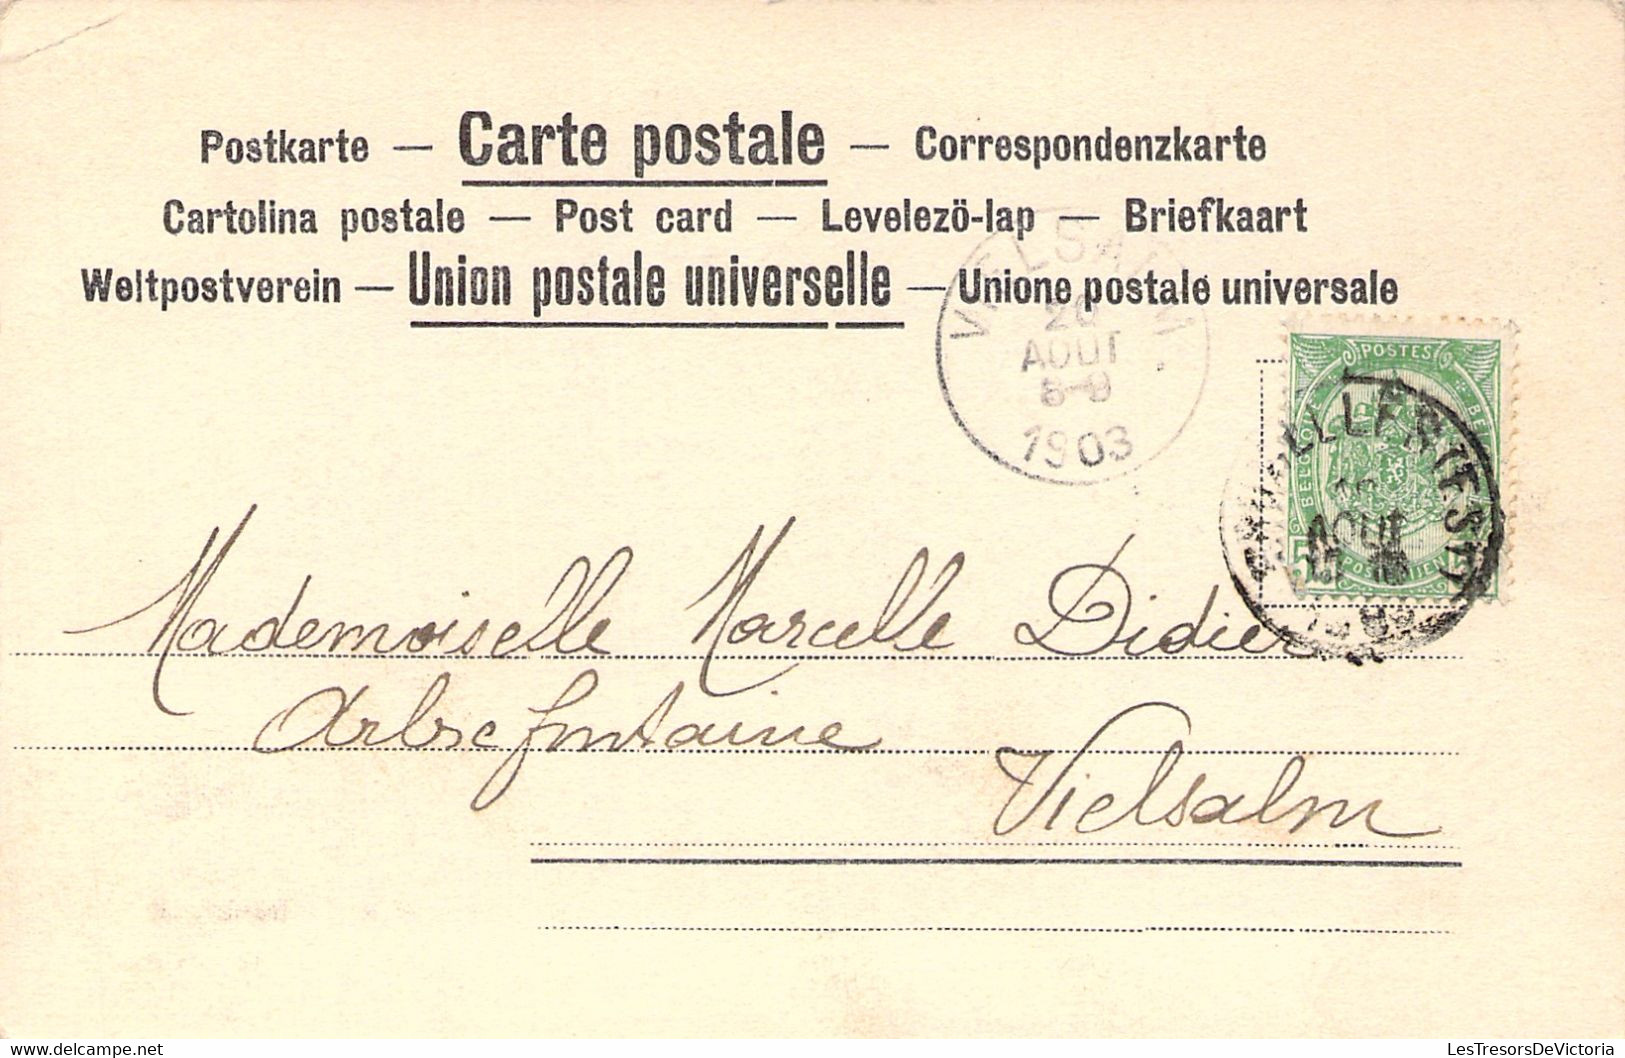 Postkarte — Carte postale — Correspondenzkarte
Cartolina postale — Post card — Levelezö-lap — Briefkaart
Weltpostverein — Union postale universelle — Unione postale universale
VIELSALM
20
AOUT
1903
POSTES
BELGIQUE
5
AOUT
Mademoiselle Marcelle Didier
Arbrefontaine
Vielsalm
LesTresorsDeVictoria